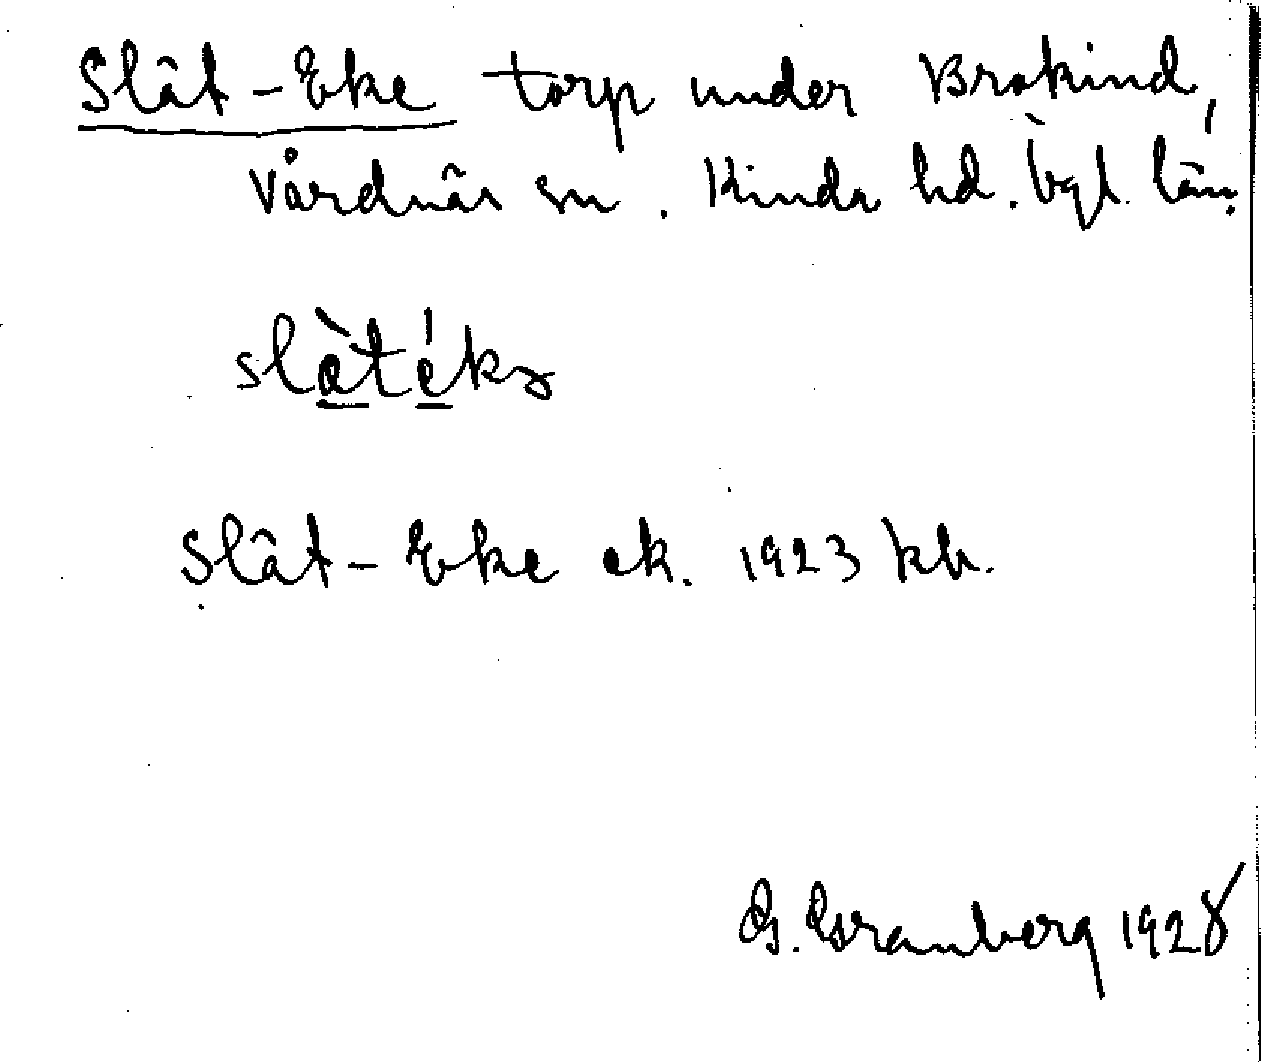 Slät-Eke torp under Brokind,
Vårdnäs sn. Kinda hd. Ögl. län.
slàtékə
Slät-Eke ek. 1923 kb.
G. Granberg 1928